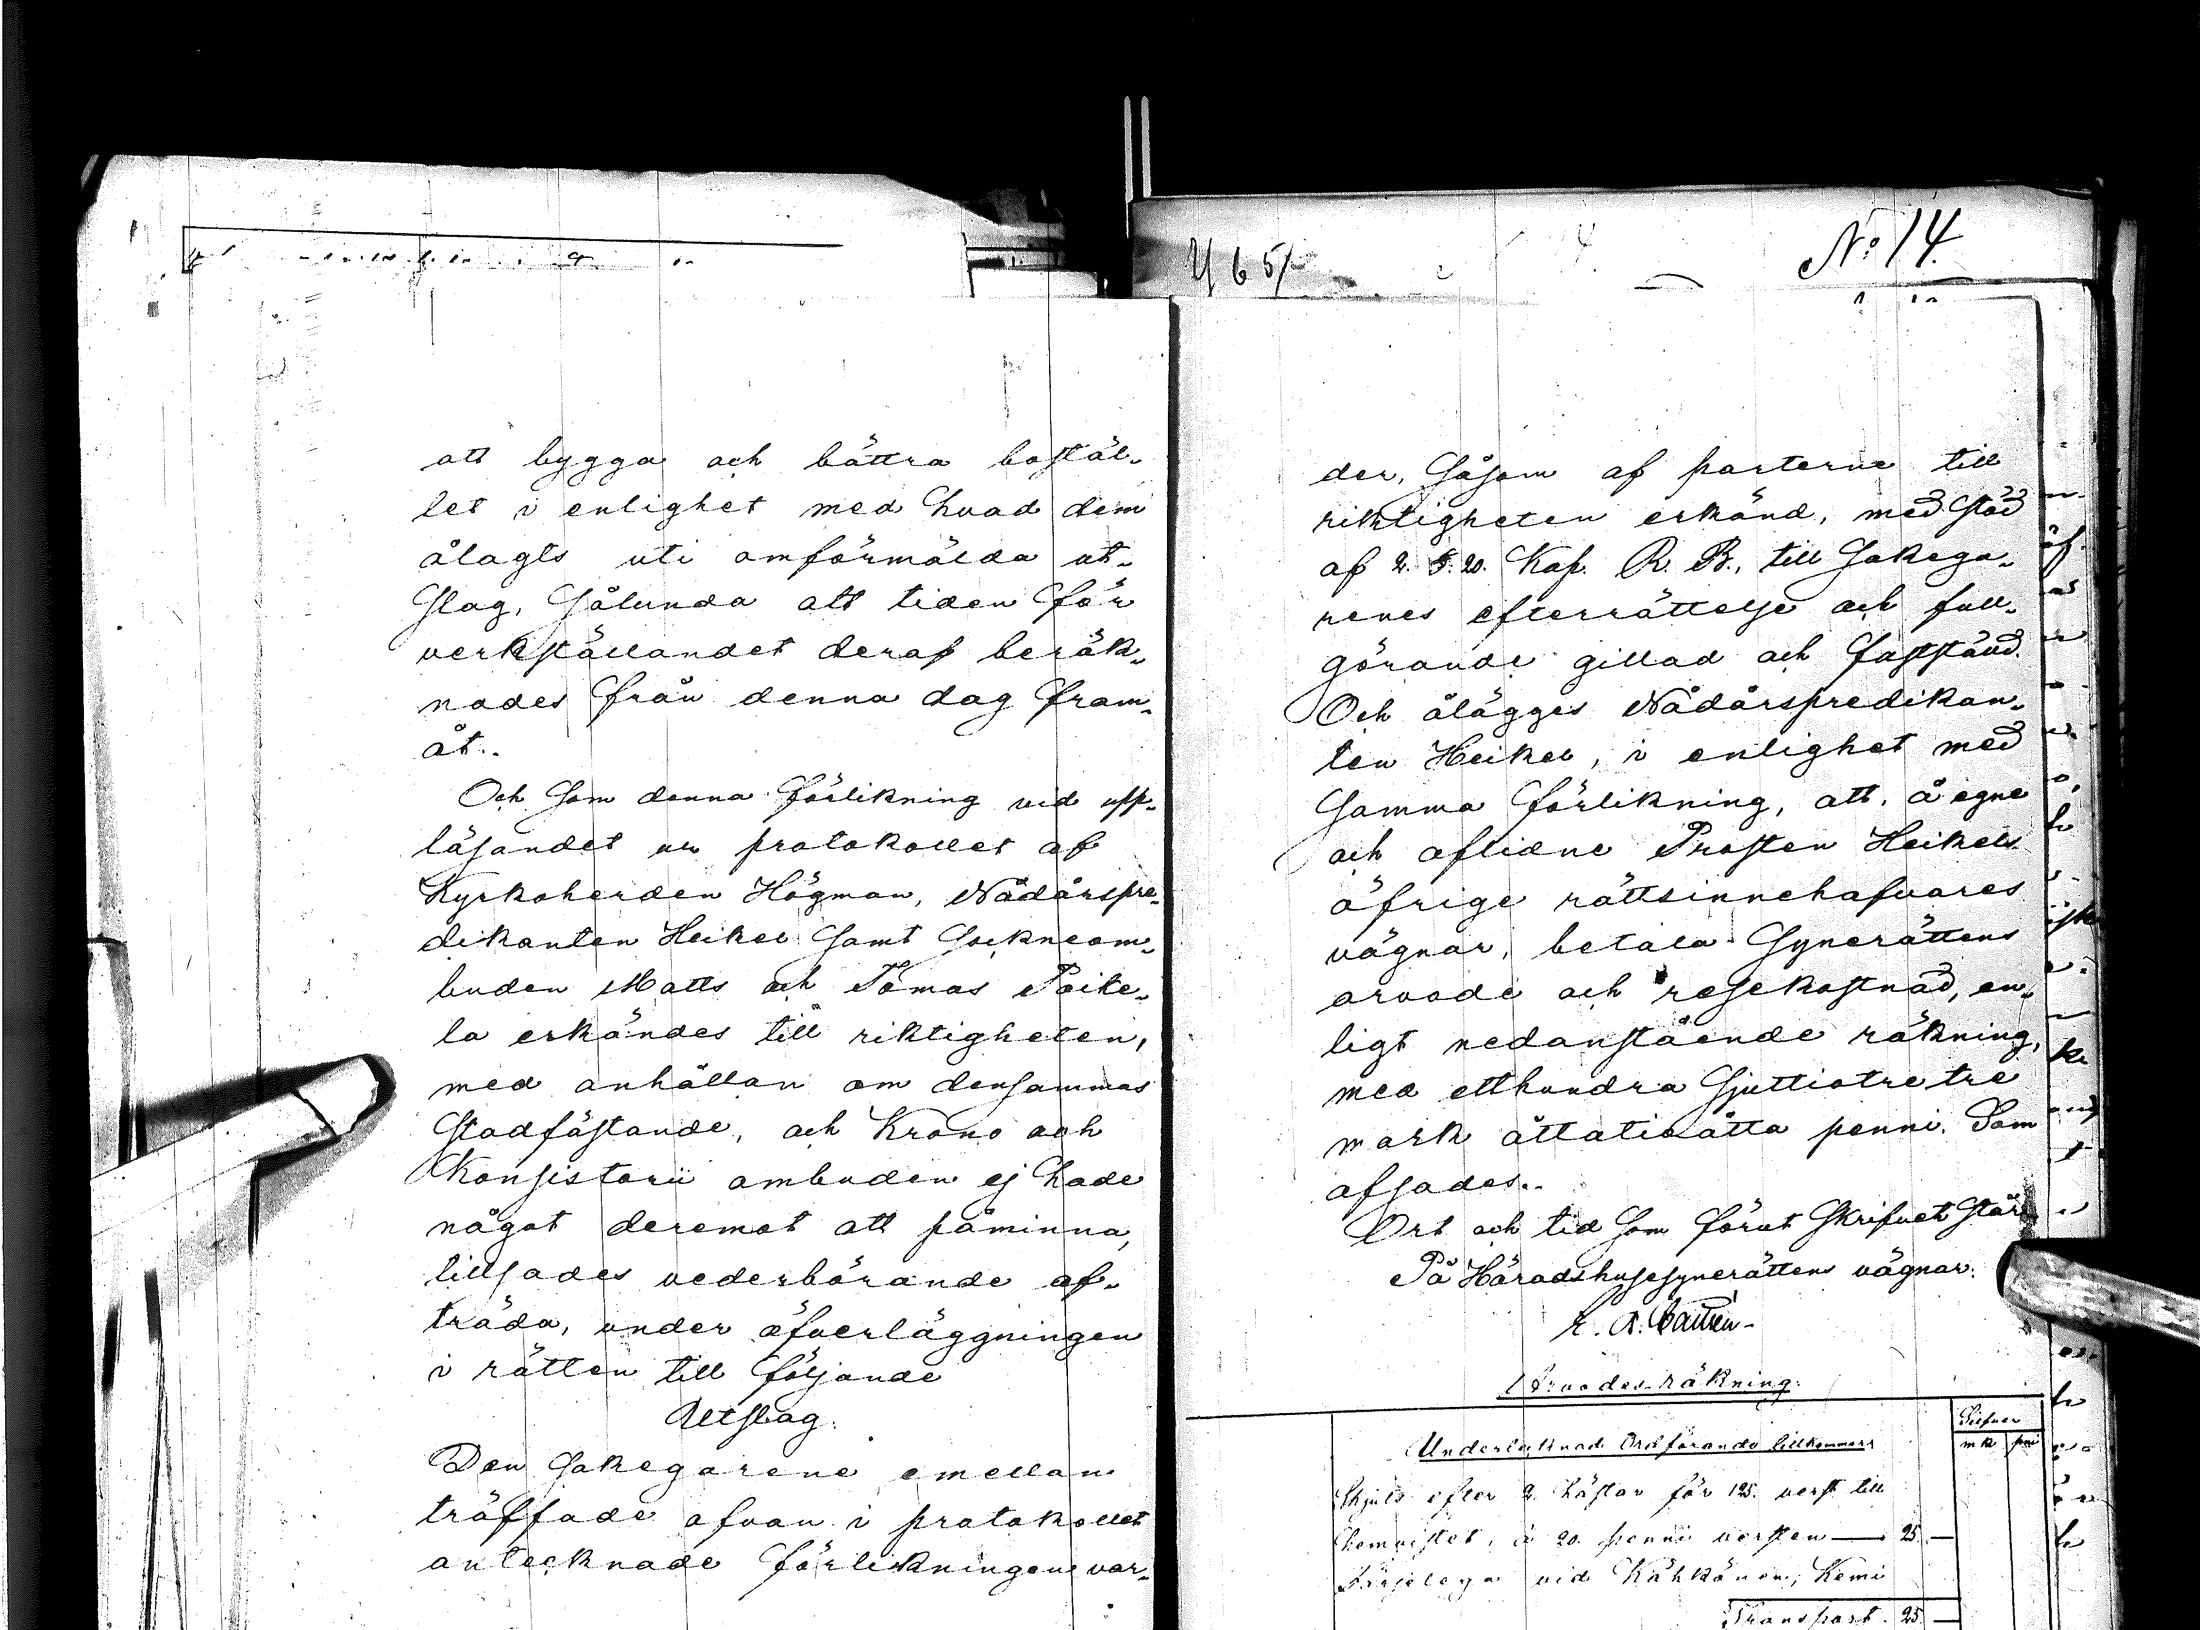 att bygga och bättra bostäl-
let i enlighet med hvad dem
ålagts uti omförmälda ut-
slag, sålunda att tiden för
verkställandet deraf beräk-
nades från denna dag fram-
åt.
Och som denna förlikning vid upp-
läsandet ur protokollet af
Kyrkoherden Högman, Nådårspre-
dikanten Heikel samt sockneom-
buden Matts och Tomas Poike-
la erkändes till riktigheten,
med anhållan om densammas
stadfästande, och Krono och
Konsistorii ombuden ej hade
något deremot att påminna,
tillsades vederbörande af-
träda, under öfverläggningen
i rätten till följande
Utslag.
Den sakegarene emellan
träffade ofvan i protokollet
antecknade förlikningen var-
465
No 14.
der, såsom af parterne till
riktigheten erkänd, med stöd
af 2. §. 20. Kap. R. B., till sakega-
renes efterrättelse och full-
görande gillad och fastställd.
Och ålägges Nådårspredikan-
ten Heikel, i enlighet med
samma förlikning, att, å egne
och aflidne Prosten Heikels
öfrige rättsinnehafvares
vägnar, betala Synerättens
arvode och resekostnad, en-
ligt nedanstående räkning,
med etthundra sjuttiotre tre
mark åttatioåtta penni. Som
afsades.
Ort och tid som förut skrifvet står
På Häradshusesynerättens vägnar:
Arvodes-räkning:
Undertecknad Ordförande tillkommer:
Silfver
mk pni
Skjuts efter 2. hästar för 125. verst till
hemvistet, à 20. penni versten — 25. —
Färjelega vid Kähkönen, Kemi
Transport. 25. —